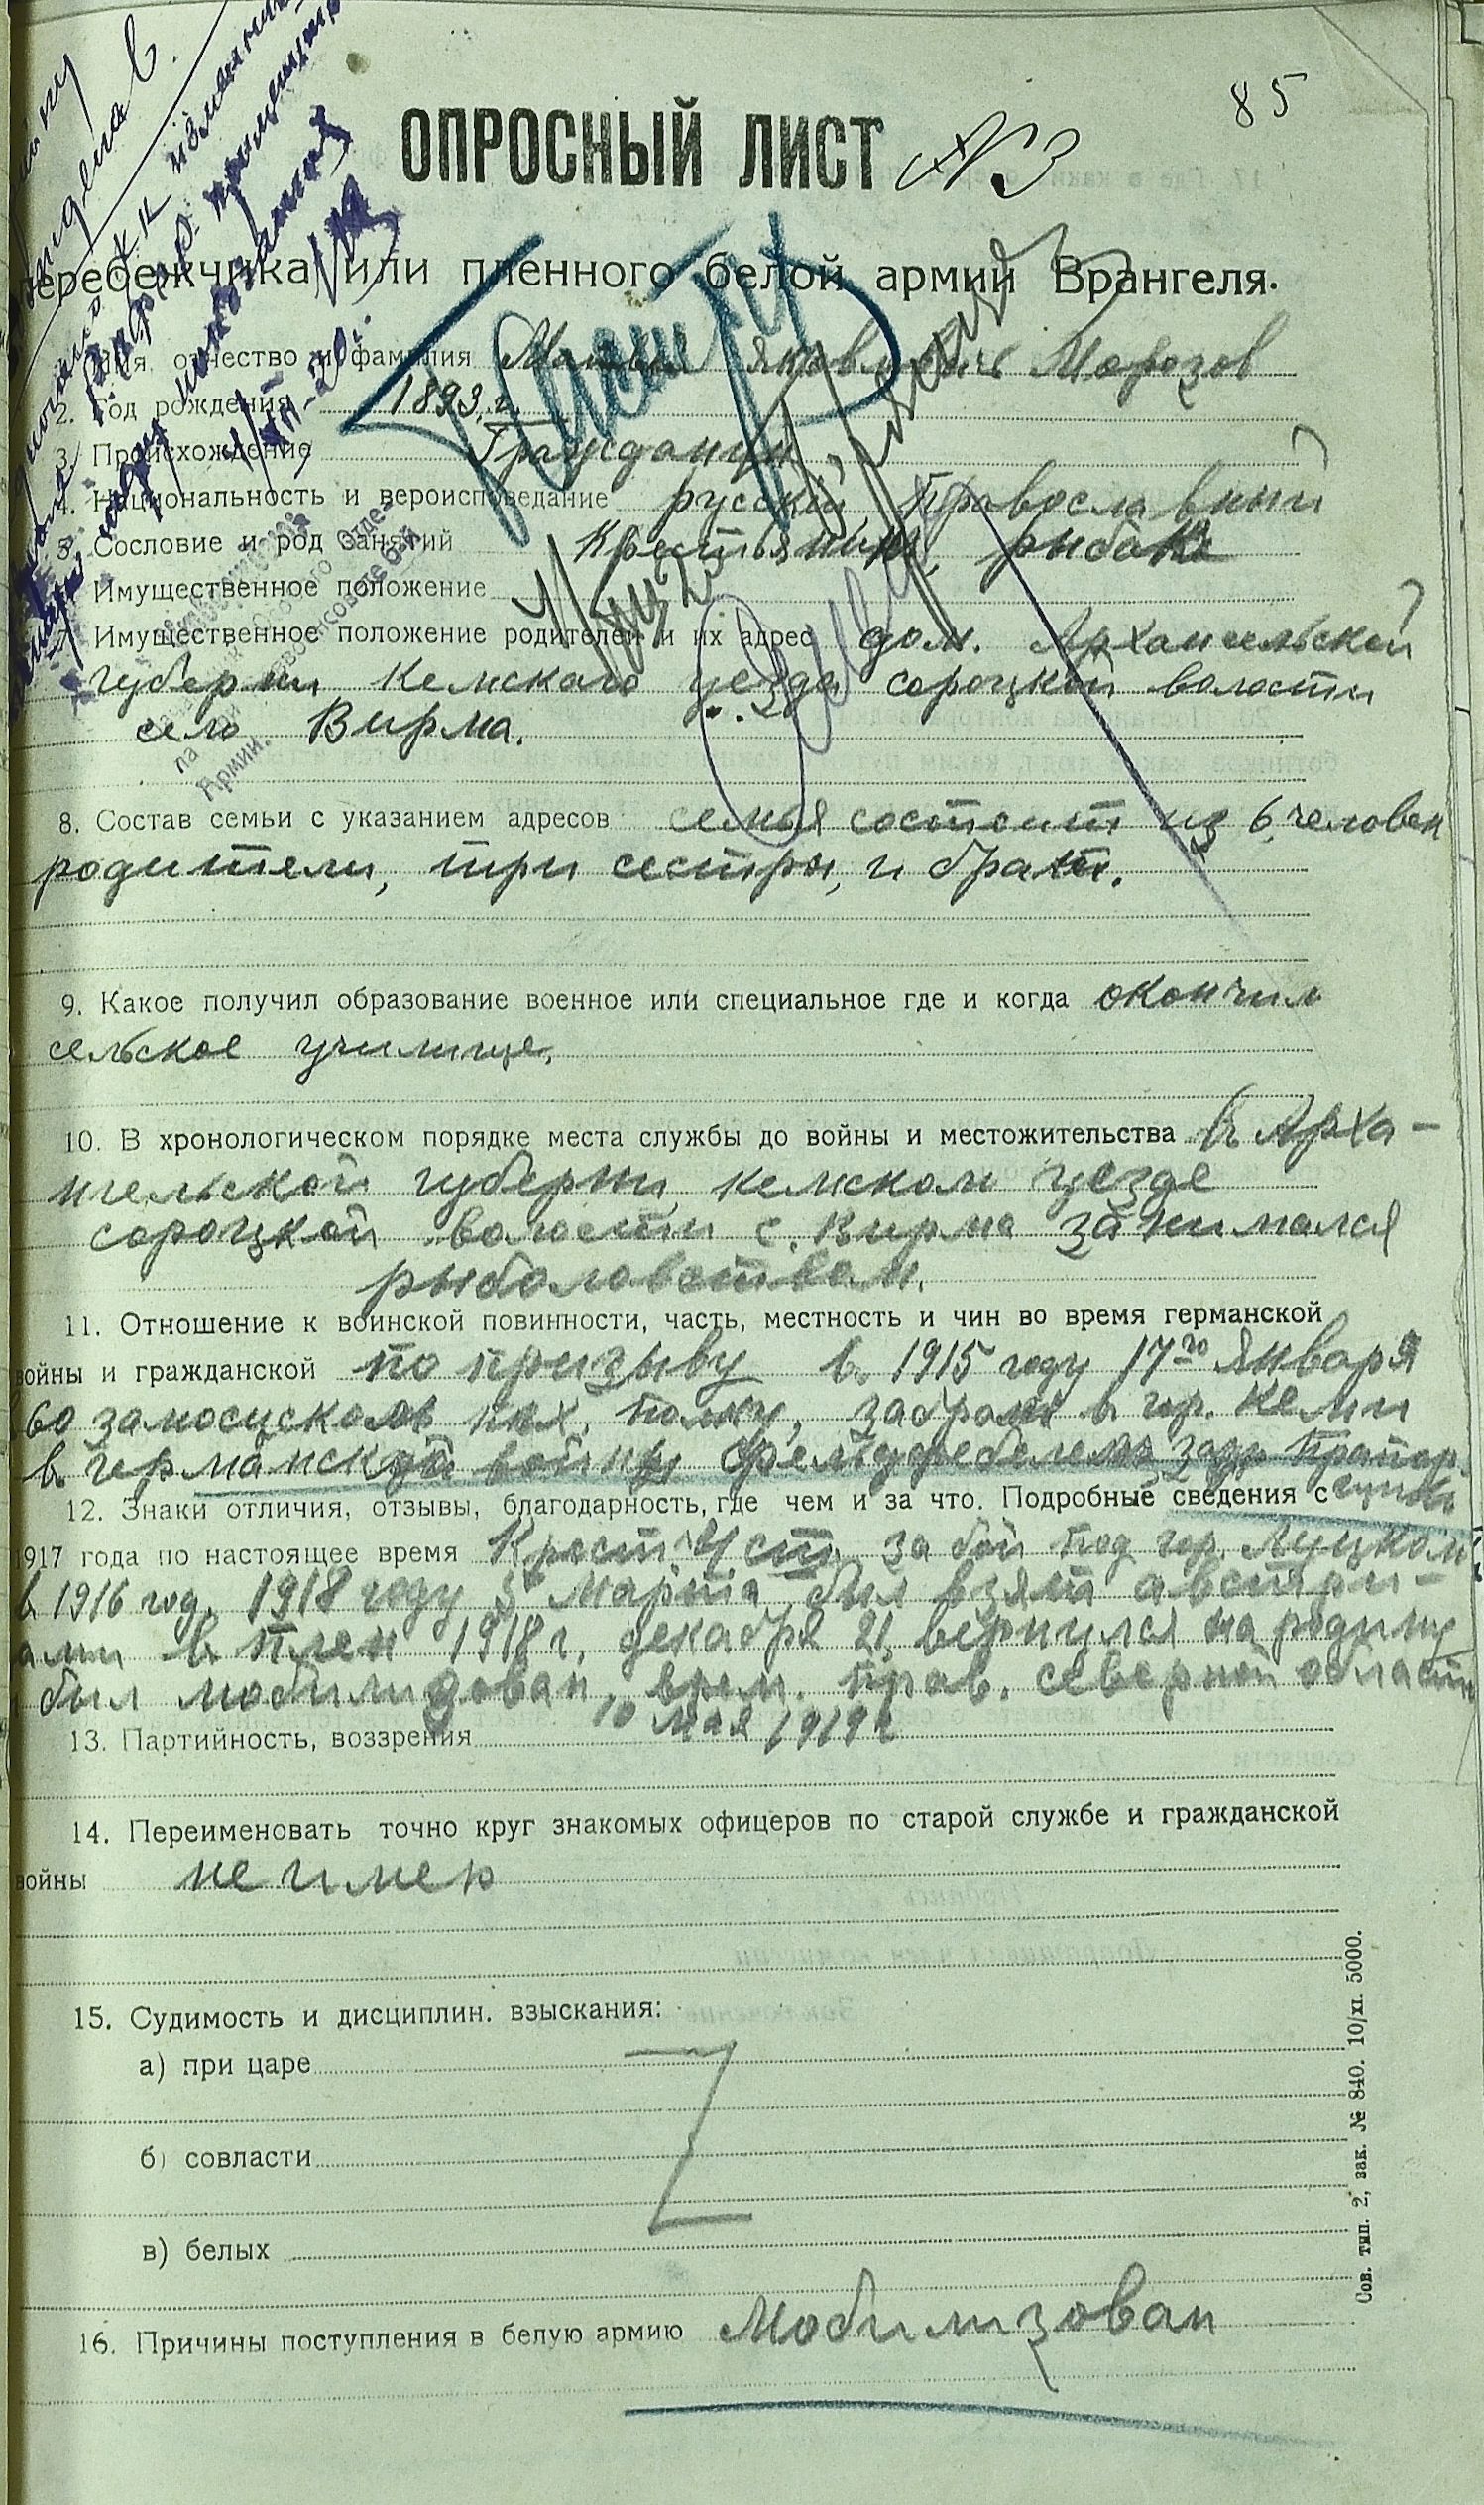 85
ОПРОСНЫЙ ЛИСТ №3
перебежчика или пленного белой армии Врангеля.
Имя, отчество и фамилия Яковлевичъ Морозов
2. Год рождения 1893 г.
3. Происхождение Гражданин
4. Национальность и вероисповедание русский Православный
5. Сословие и род занятий Крестьянинъ, рыбакъ
Имущественное положение
7. Имущественное положение родителей и их адрес дом. Архангельской
губерни Кемскаго уезда сороцкой волости
село Вирма.
8. Состав семьи с указанием адресов семья состоит из 6 человек
родители, три сестры, и брат.
9. Какое получил образование военное или специальное где и когда окончил
сельское училище,
10. В хронологическом порядке места службы до войны и местожительства въ Арха-
нгельской губерни кемском уезде
сороцкой волости с. Вирма занимался
рыболовством.
11. Отношение к воинской повинности, часть, местность и чин во время германской
войны и гражданской по призыву в 1915 году 17го января
60 замосцском пех. полку, забран в гор. Кеми
в германской войны фельдфебелем заур прапор
12. Знаки отличия, отзывы, благодарность, где чем и за что. Подробные сведения с
1917 года по настоящее время Крест 4 ст за бой под гор. Луцком
в 1916 год. 1918 году 5 Марта был взят австри-
ами в плен 1918 г. декабря 21 вернулся на родину
был мобилизован врем. прав. северной области
10 мая 1919 г
13. Партийность, воззрения
14. Переименовать точно круг знакомых офицеров по старой службе и гражданской
войны не имею
15. Судимость и дисциплин. взыскания:
а) при царе
б) совласти
в) белых
16. Причины поступления в белую армию Мобилизован
Сов. тип. 2, зак. № 840. 10/XI. 5000.